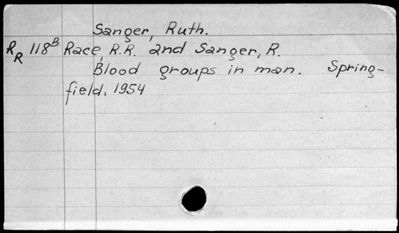 Sanger, Ruth.
R R 118B Race, R.R. and Sanger, R.
Blood groups in man. Spring-
field, 1954